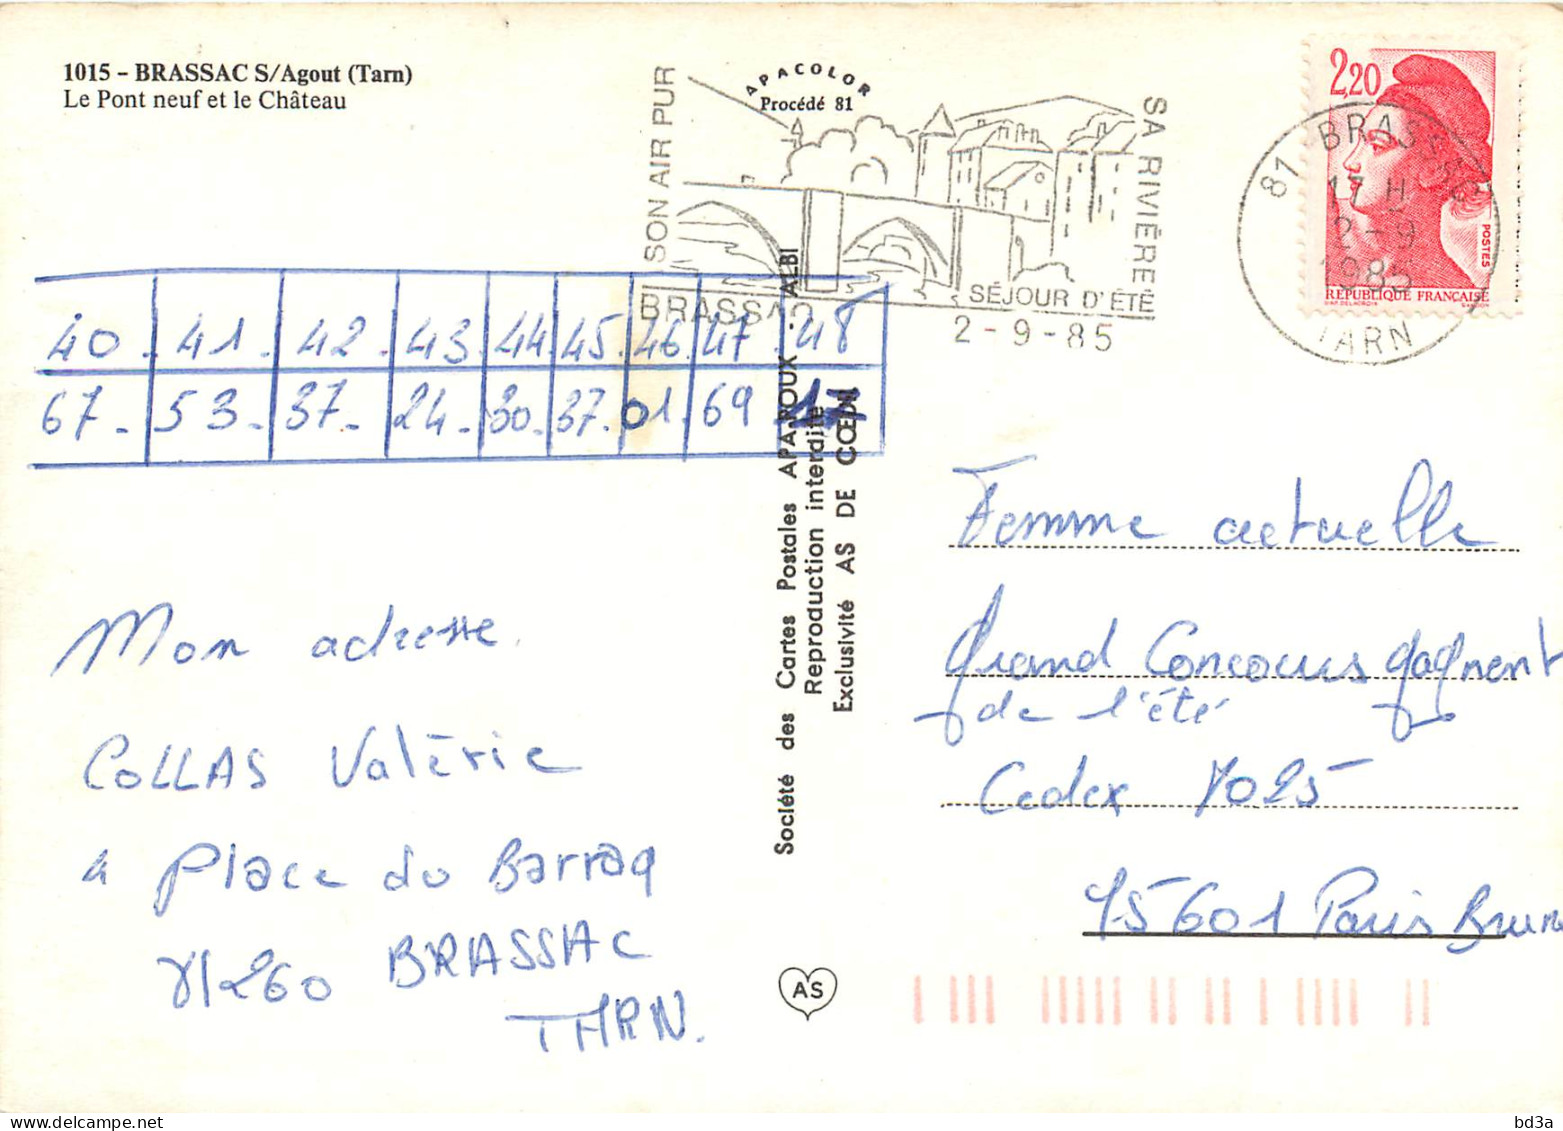 1015 - BRASSAC S/Agout (Tarn)
Le Pont neuf et le Château
APACOLOR
Procédé 81
SON AIR PUR
SA RIVIÈRE
BRASSAC
SÉJOUR D'ÉTÉ
2-9-85
2,20
POSTES
RÉPUBLIQUE FRANÇAISE
81 BRASSAC
17 H
2-9
1985
TARN
40. 41. 42. 43. 44. 45. 46. 47. 48
67. 53. 37. 24. 30. 37. 01. 69
Société des Cartes Postales APA-POUX - ALBI
Reproduction interdite
Exclusivité AS DE CŒUR
Femme actuelle
Grand Concours gagnent
de l'été
Cedex 7025
75601 Paris Brune
Mon adresse.
COLLAS Valérie
4 Place du Barraq
81260 BRASSAC
TARN.
AS
bd3a